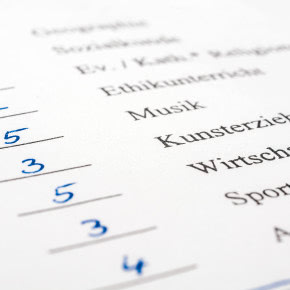 Geographie
Sozialkunde
Ev. / Kath.* Religions
Ethikunterricht
Musik
5
Kunsterzieh
3
Wirtscha
5
Sport
3
A
4